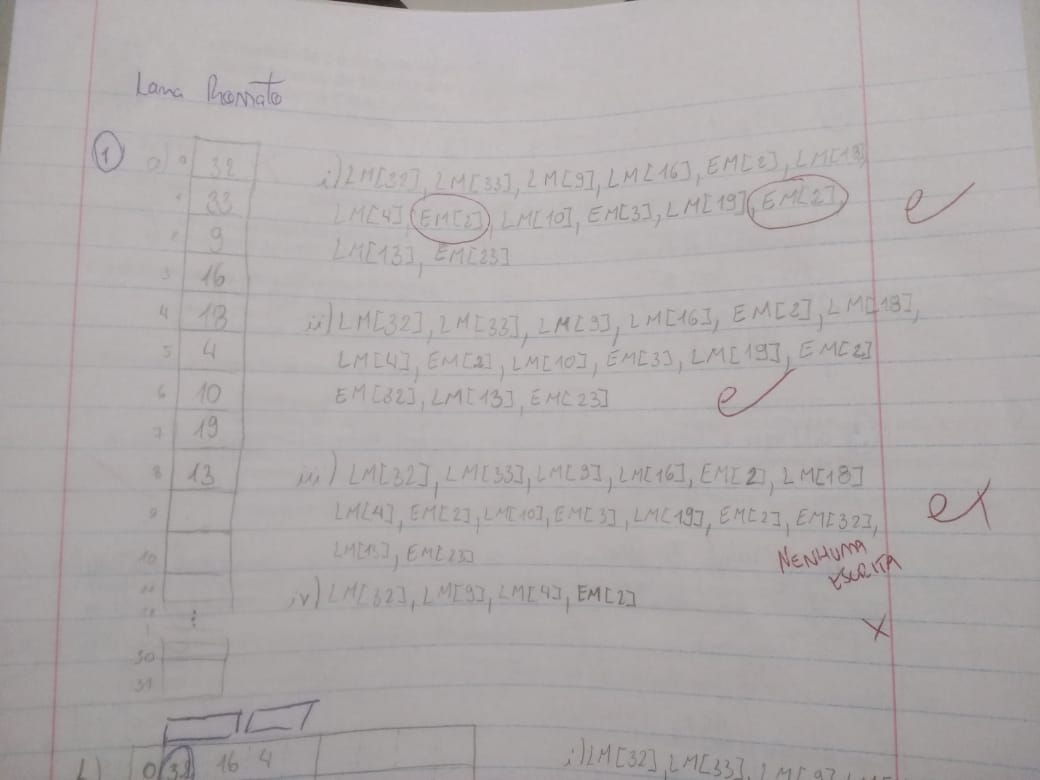 Lana
1
a) 0 32
1 33
2 9
3 16
4 18
5 4
6 10
7 19
8 13
9
10
11
30
31
i) LM[32], LM[33], LM[9], LM[16], EM[2], LM[18]
LM[4], EM[2], LM[10], EM[3], LM[19], EM[2],
LM[13], EM[23]
ii) LM[32], LM[33], LM[9], LM[16], EM[2], LM[18],
LM[4], EM[2], LM[10], EM[3], LM[19], EM[2]
EM[32], LM[13], EM[23]
iii) LM[32], LM[33], LM[9], LM[16], EM[2], LM[18]
LM[4], EM[2], LM[10], EM[3], LM[19], EM[2], EM[32],
LM[13], EM[23]
NENHUMA
ESCRITA
iv) LM[32], LM[9], LM[4], EM[2]
0 32 16 4
i) LM[32], LM[33], LM[9], LM[16]